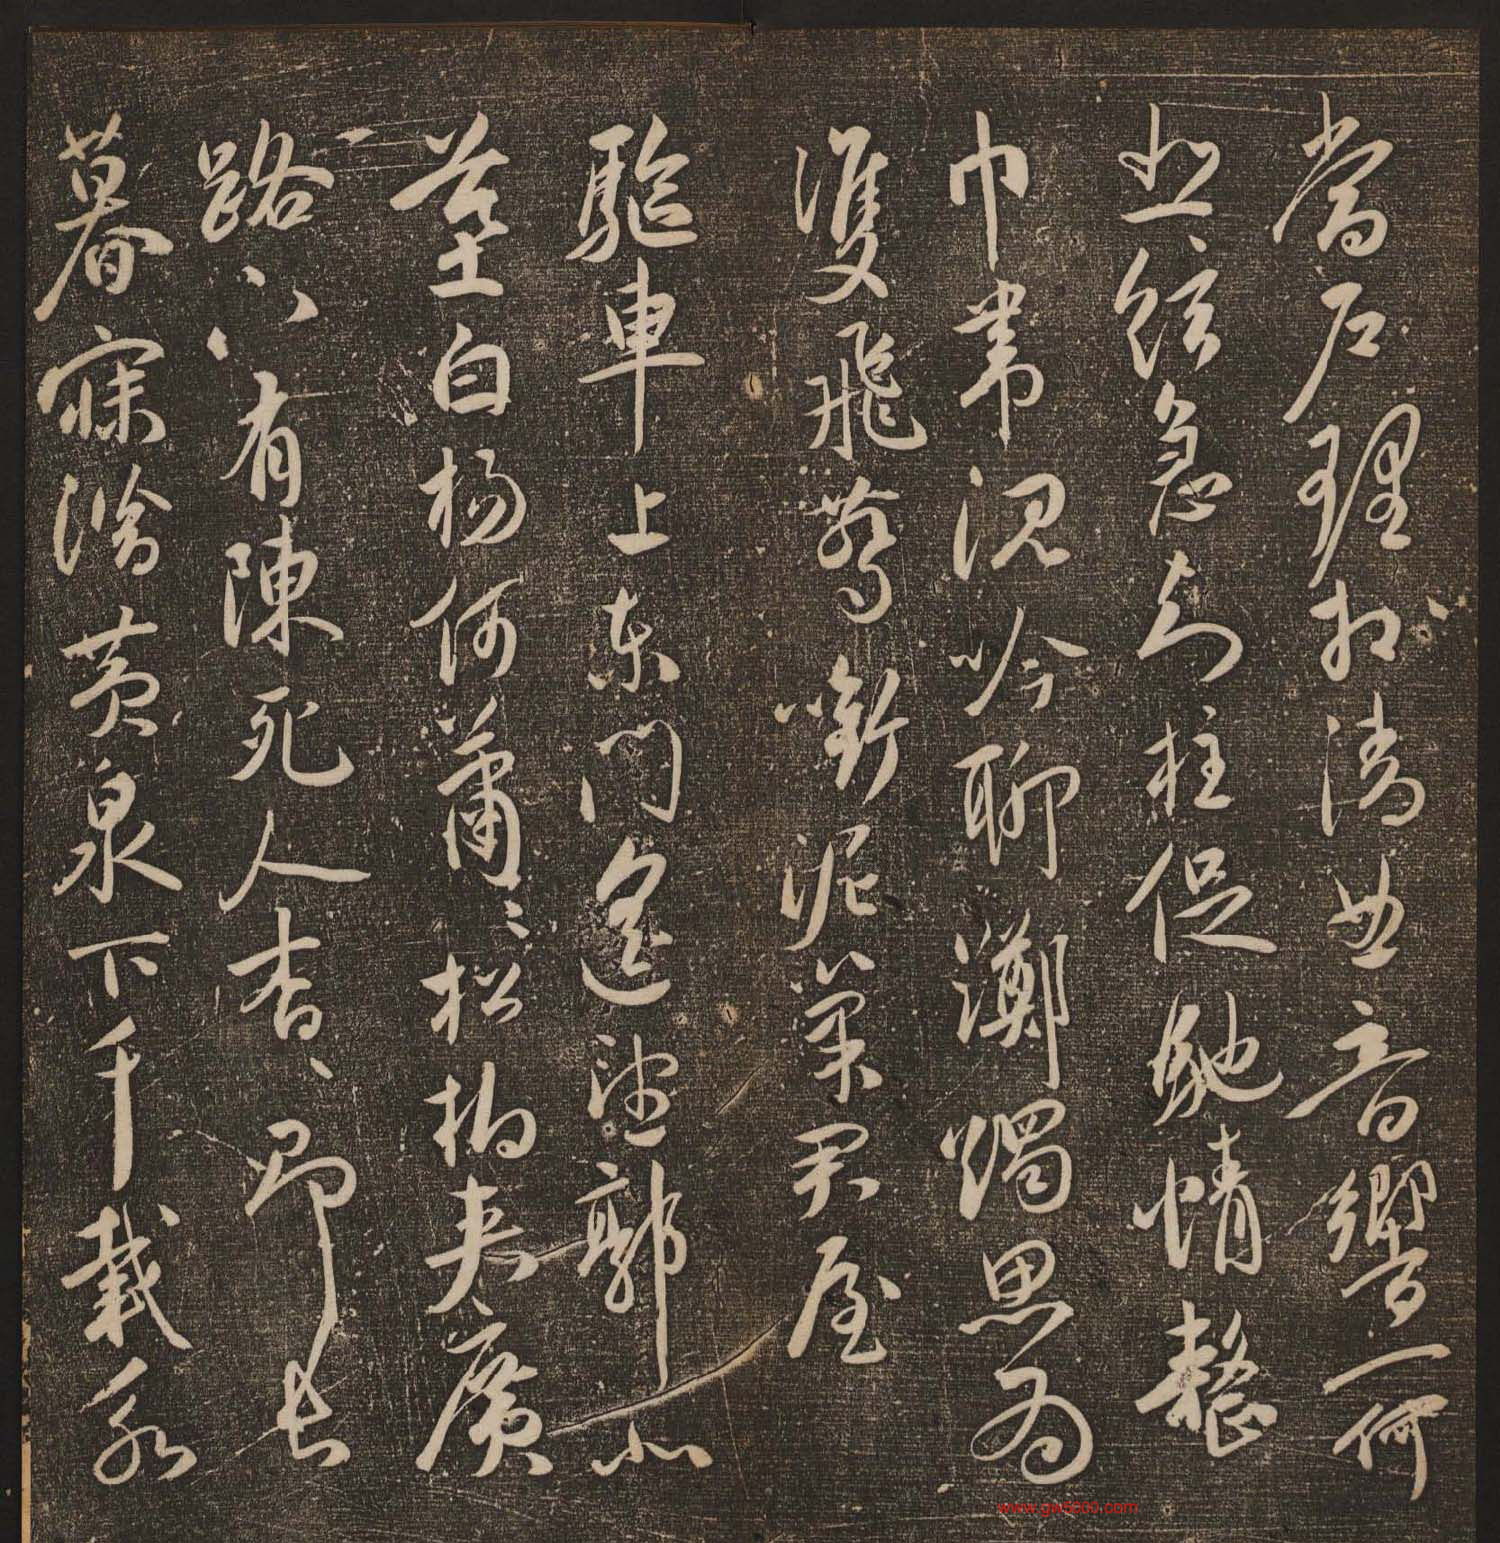 當戶理清曲音響一何
悲絃急知柱促馳情整
巾帶沉吟聊躑躅思為
雙飛鷰銜泥巢君屋
驅車上東門遙望郭北
墓白楊何蕭〻松柏夾廣
路下有陳死人杳〻即長
暮寐潛黃泉下千載永
www.gw5500.com